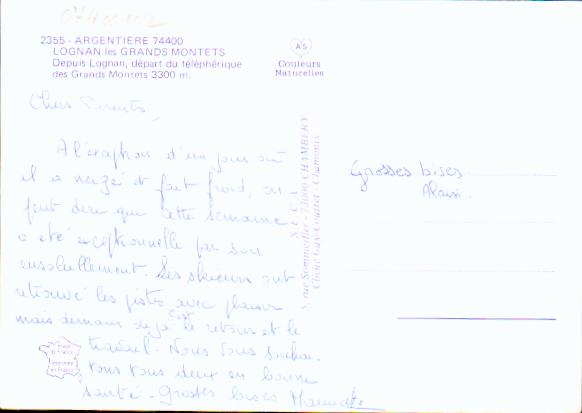 2355 - ARGENTIERE 74400
LOGNAN les GRANDS MONTETS
Depuis Lognan, départ du téléphérique
des Grands Montets 3300 m.
AS
Couleurs
Naturelles
Chers Parents,
A l'exception d'un jour où
il a neigé et fait froid, on
peut dire que cette semaine
a été exceptionnelle par son
ensoleillement. Les skieurs ont
retrouvé les pistes avec plaisir
mais demain déjà c'est le retour et le
travail. Nous vous souhai-
tons tous deux en bonne
santé. Grosses bises
rue Sommeiller - 73000 CHAMBERY
Cliché Gay-Couttet - Chamonix
Grosses bises
Alain.
Imprimé
en France